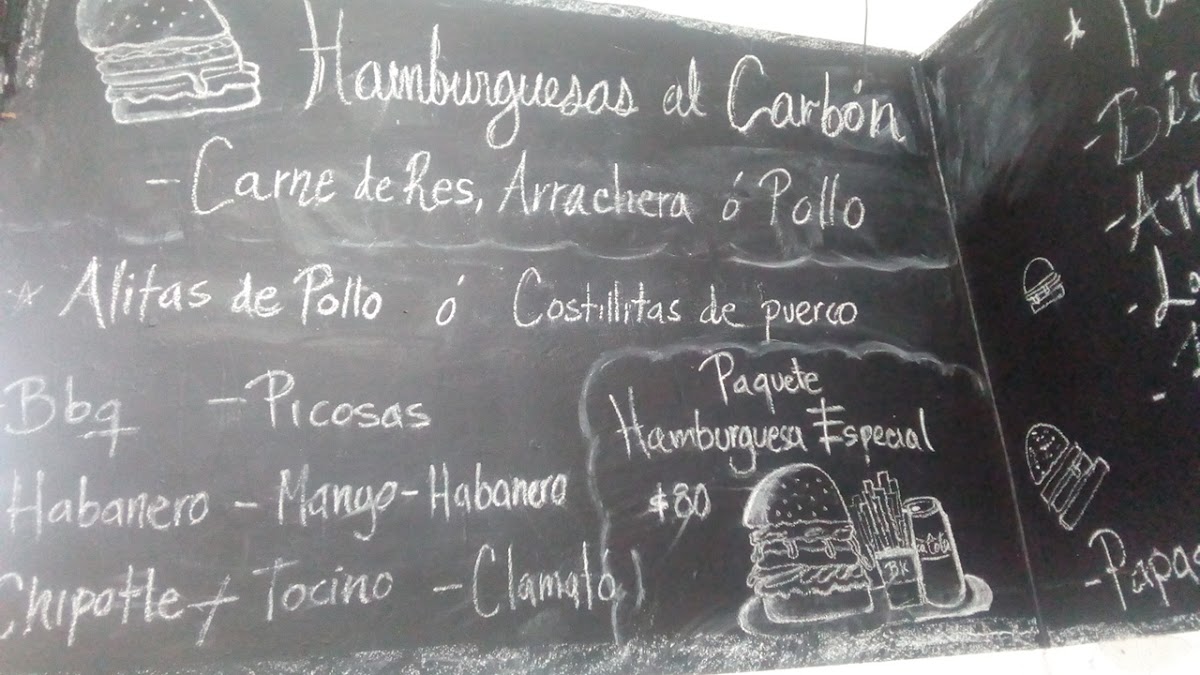 Hamburguesas al Carbón
- Carne de Res, Arrachera ó Pollo
Alitas de Pollo ó Costillitas de puerco
- Bbq - Picosas
Habanero - Mango-Habanero
Chipotle + Tocino - Clamato
Paquete
Hamburguesa Especial
$80
BK